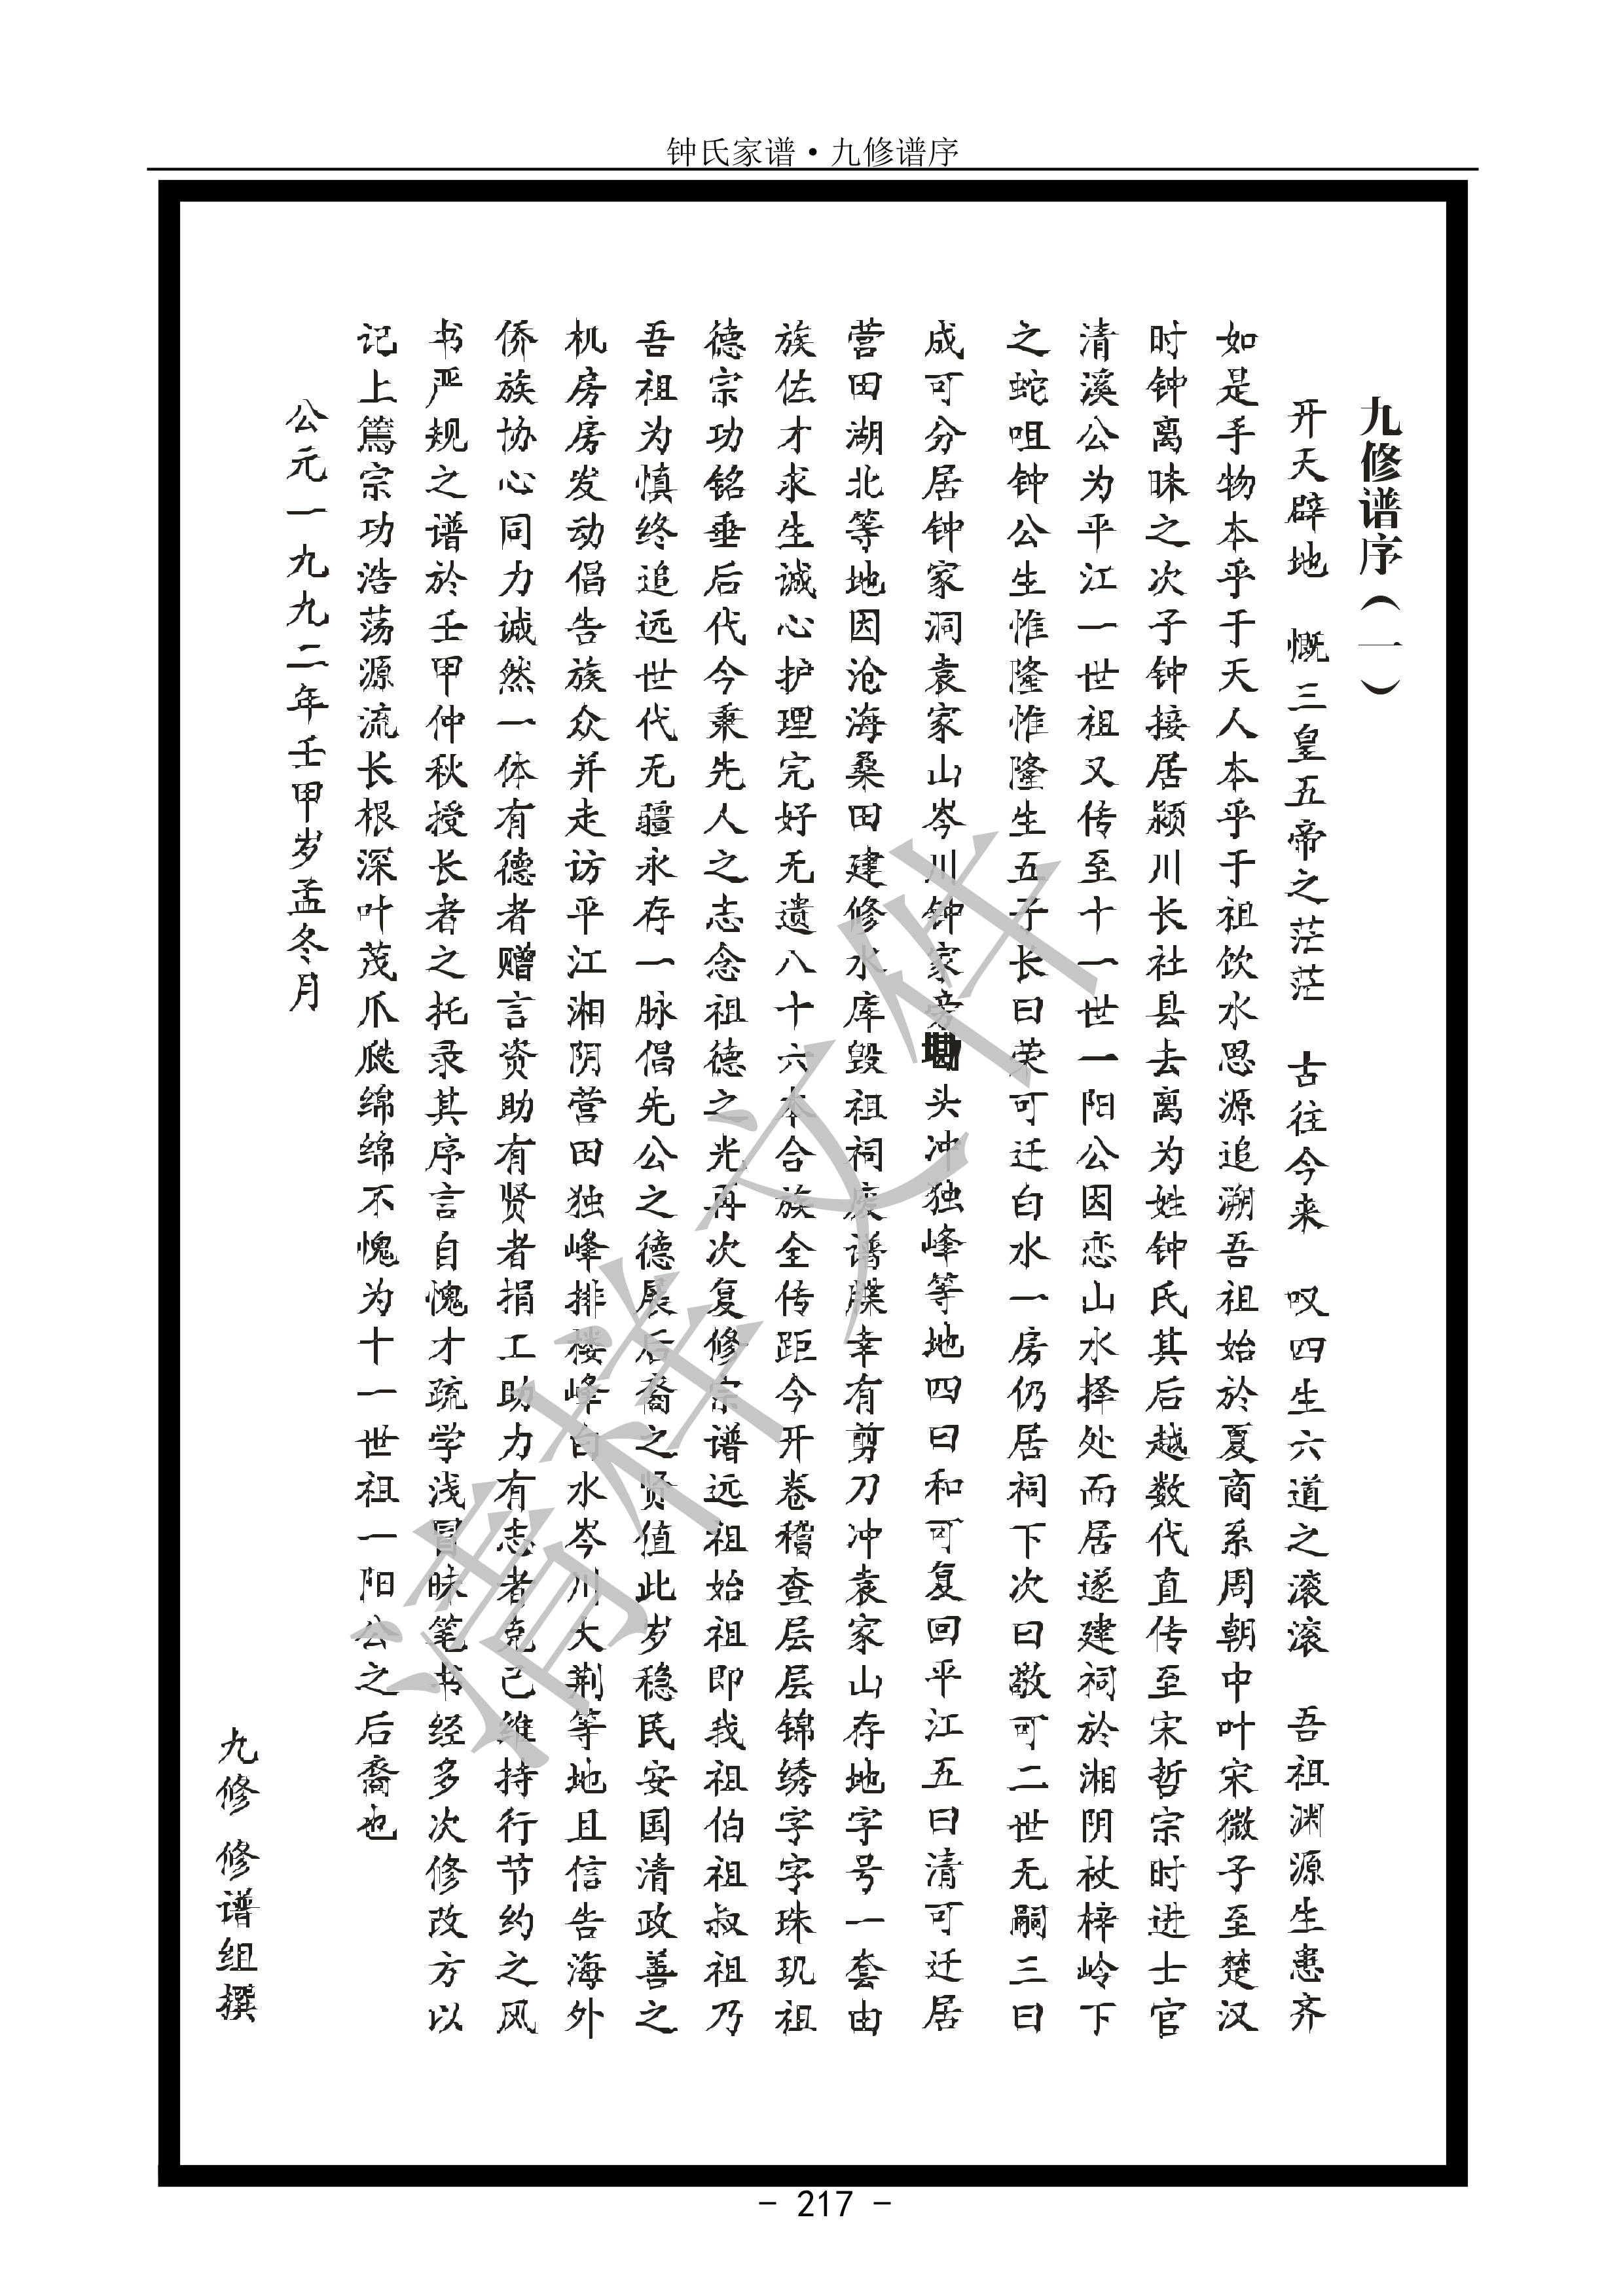 钟氏家谱·九修谱序
九修谱序（一）
开天辟地 慨三皇五帝之茫茫 古往今来 叹四生六道之滚滚 吾祖渊源生患齐
如是手物本乎于天人本乎于祖饮水思源追溯吾祖始於夏商系周朝中叶宋微子至楚汉
时钟离昧之次子钟接居颍川长社县去离为姓钟氏其后越数代直传至宋哲宗时进士官
清溪公为平江一世祖又传至十一世一阳公因恋山水择处而居遂建祠於湘阴杖梓岭下
之蛇咀钟公生惟隆惟隆生五子长曰荣可迁白水一房仍居祠下次曰敬可二世无嗣三曰
成可分居钟家洞袁家山岑川钟家旁墈头冲独峰等地四曰和可复回平江五曰清可迁居
营田湖北等地因沧海桑田建修水库毁祖祠废谱牒幸有剪刀冲袁家山存地字号一套由
族佐才求生诚心护理完好无遗八十六本合族全传距今开卷稽查层层锦绣字字珠玑祖
德宗功铭垂后代今秉先人之志念祖德之光再次复修宗谱远祖始祖即我祖伯祖叔祖乃
吾祖为慎终追远世代无疆永存一脉倡先公之德展后裔之贤值此岁稳民安国清政善之
机房房发动倡告族众并走访平江湘阴营田独峰排楼峰白水岑川大荆等地且信告海外
侨族协心同力诚然一体有德者赠言资助有贤者捐工助力有志者克己维持行节约之风
书严规之谱於壬甲仲秋授长者之托录其序言自愧才疏学浅冒昧笔书经多次修改方以
记上篤宗功浩荡源流长根深叶茂爪瓞绵绵不愧为十一世祖一阳公之后裔也
公元一九九二年壬甲岁孟冬月
九修 修谱组撰
清样文件
- 217 -